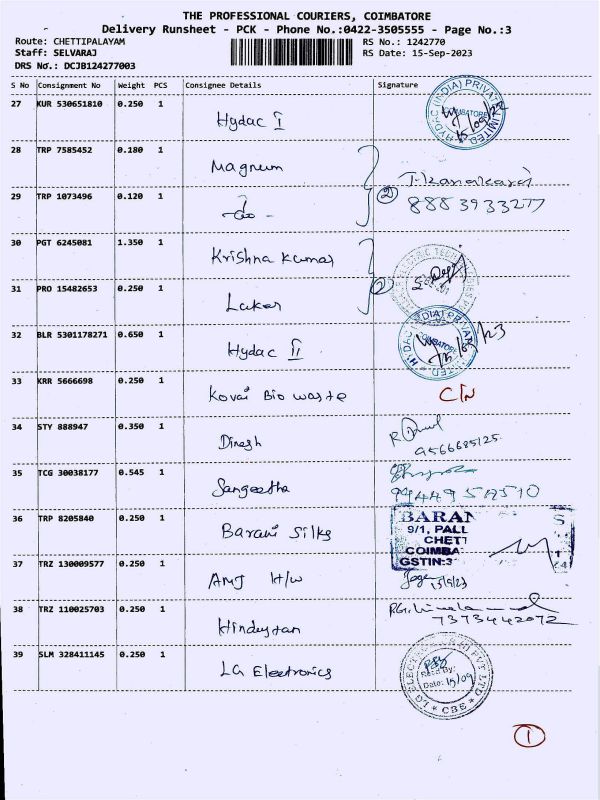 THE PROFESSIONAL COURIERS, COIMBATORE
Delivery Runsheet - PCK - Phone No.:0422-3505555 - Page No.:3
Route: CHETTIPALAYAM RS No.: 1242770
Staff: SELVARAJ RS Date: 15-Sep-2023
DRS No.: DCJB124277003
S No Consignment No Weight PCS Consignee Details Signature
27 KUR 530651810 0.250 1 Hydac I
HYDAC (INDIA) PRIVATE LIMITED COIMBATORE
28 TRP 7585452 0.180 1 Magnum
29 TRP 1073496 0.120 1 -do-
2 T. Kanakaraj
8883933277
30 PGT 6245081 1.350 1 Krishna Kumar
31 PRO 15482653 0.250 1 Laker
32 BLR 5301178271 0.650 1 Hydac II
HYDAC (INDIA) PRIVATE LIMITED COIMBATORE 15/09/23
33 KRR 5666698 0.250 1 Kovai Bio waste C/N
34 STY 888947 0.350 1 Dinesh
9566685125
35 TCG 30038177 0.545 1 Sangeetha
36 TRP 8205840 0.250 1 Barani Silks
BARAN
9/1, PALL
CHETT
COIMBA
GSTIN:3
37 TRZ 130009577 0.250 1 AMJ H/W
15/9/23
38 TRZ 110025703 0.250 1 Hindustan
7373442072
39 SLM 328411145 0.250 1 LG Electronics
Recd By:
Date: 15/09
CBE
1